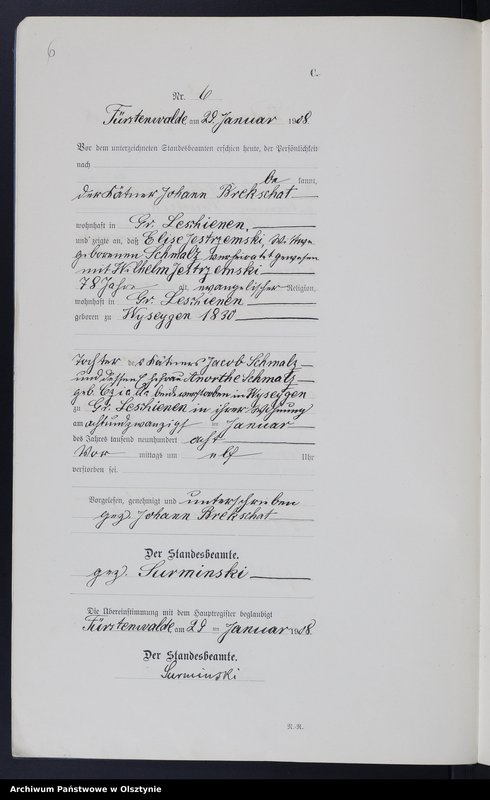 6
C.
Nr. 6
Fürstenwalde am 29. Januar 1908.
Vor dem unterzeichneten Standesbeamten erschien heute, der Persönlichkeit
nach be kannt,
der Kätner Johann Brekschat
wohnhaft in Gr. Leschienen,
und zeigte an, daß Elise Jestrzemski, Witwe
geborenen Schmalz verheiratet gewesen
mit Wilhelm Jestrzemski
78 Jahre alt, evangelischer Religion,
wohnhaft in Gr. Leschienen
geboren zu Wyseggen 1830
Tochter des Kätners Jacob Schmalz
und dessen Ehefrau Anorthe Schmalz
geb. beide verstorben in Wyseggen
zu Gr. Leschienen in ihrer Wohnung
am achtundzwanzigst en Januar
des Jahres tausend neunhundert acht
Vor mittags um elf Uhr
verstorben sei.
Vorgelesen, genehmigt und unterschrieben
gez. Johann Brekschat
Der Standesbeamte.
gez. Surminski
Die Übereinstimmung mit dem Hauptregister beglaubigt
Fürstenwalde am 29 ten Januar 1908.
Der Standesbeamte.
Surminski
R.-R.
Archiwum Państwowe w Olsztynie